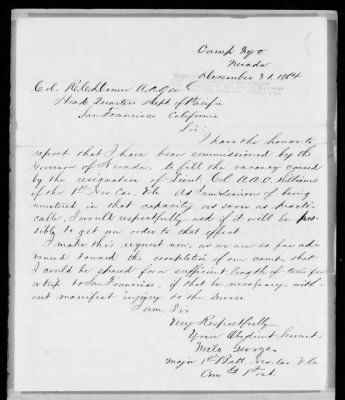 Camp Nye
Nevada
December 31, 1864
Col. R.C. Drum A.A.Genl
Head Quarters Dept of Pacific
San Francisco California
Sir:
I have the honor to
report that I have been commissioned by the
Governor of Nevada, to fill the vacancy caused
by the resignation of Lieut. Col. A.A.C. Williams
of the 1st Nev Cav. Vols. As I am desirous of being
mustered in that capacity as soon as practi-
cable, I would respectfully ask if it will be pos-
sibly to get an order to that effect
I make this request now, as we are so far ad-
vanced toward the completion of our camp that
I could be spared for a sufficient length of time for
a trip to San Francisco, if that be necessary, with-
out manifest injury to the service
I am, Sir
Very Respectfully
Your Obedient Servant
Milo George
Major 1st Batt. Nev. Cav Vols
Comdg Post